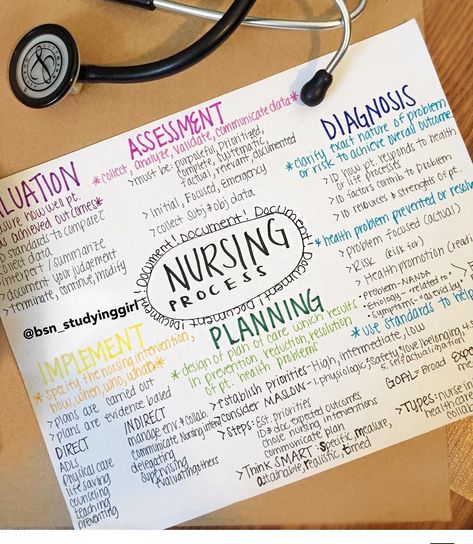 ASSESSMENT
*collect, analyze, validate, communicate data*
>must be: purposeful, prioritized,
complete, systematic,
factual, relevant, documented
>Initial, Focused, Emergency
>collect subj & obj data
DIAGNOSIS
*clarify exact nature of problem
or risk to achieve overall outcome
>ID how pt responds to health
or life processes
>ID factors contib to problem
>ID resources & strengths of pt.
*health problem prevented or
>problem focused (actual)
>Risk (risk for)
>Health promotion
-Problem-NANDA
-Etiology-"related to"
-Symptoms-"as evid by"
*use standards to help
LUATION
how well pt.
achieved outcomes*
ID standards to compare
collect data
interpret / summarize
>document your judgement
>terminate, continue, modify
Document! Document! Document! Document! Document! Document!
NURSING
PROCESS
@bsn_studyinggirl
IMPLEMENT
*specify the nursing intervention,
how, when, who, what*
>plans are carried out
>plans are evidence based
DIRECT
ADLs
physical care
life saving
counseling
teaching
preventing
INDIRECT
manage env & collab.
communicate nursing interv
delegating
supervising
evaluating others
PLANNING
*design of plan of care which results
in prevention, reduction, resolution,
of pt. health problems
>establish priorities-High, intermediate, low
>consider MASLOW-1.physiologic, 
>Steps: Est priorities
ID & doc expected outcomes
chose nursing interventions
communicate plan
>Think SMART: Specific, measure,
attainable, realistic, timed
5. self actualization
GOAL= Broad
>TYPES: nurse
health care